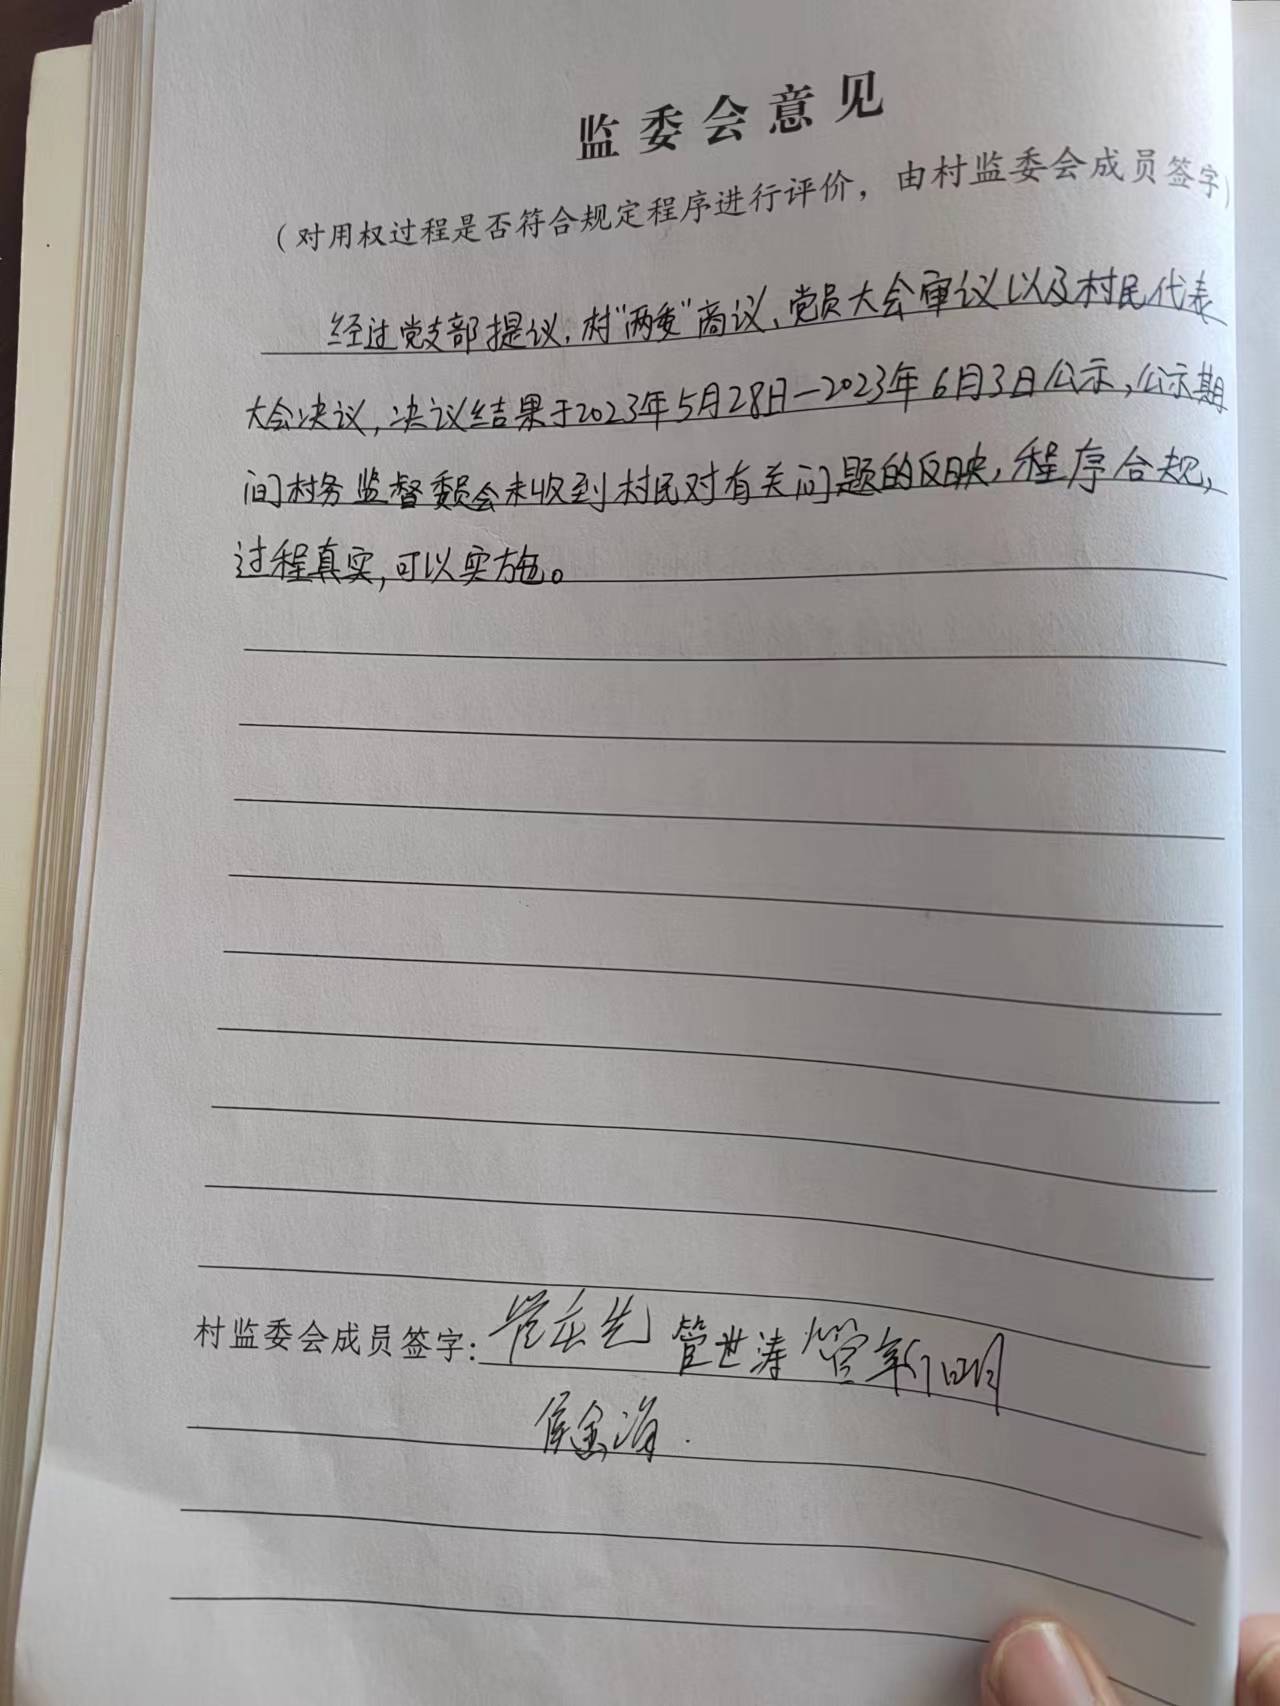 监委会意见
（对用权过程是否符合规定程序进行评价，由村监委会成员签字）
经过党支部提议，村“两委”商议、党员大会审议以及村民代表
大会决议，决议结果于2023年5月28日—2023年6月3日公示，公示期
间村务监督委员会未收到村民对有关问题的反映，程序合规，
过程真实，可以实施。
村监委会成员签字：管世涛
侯金海